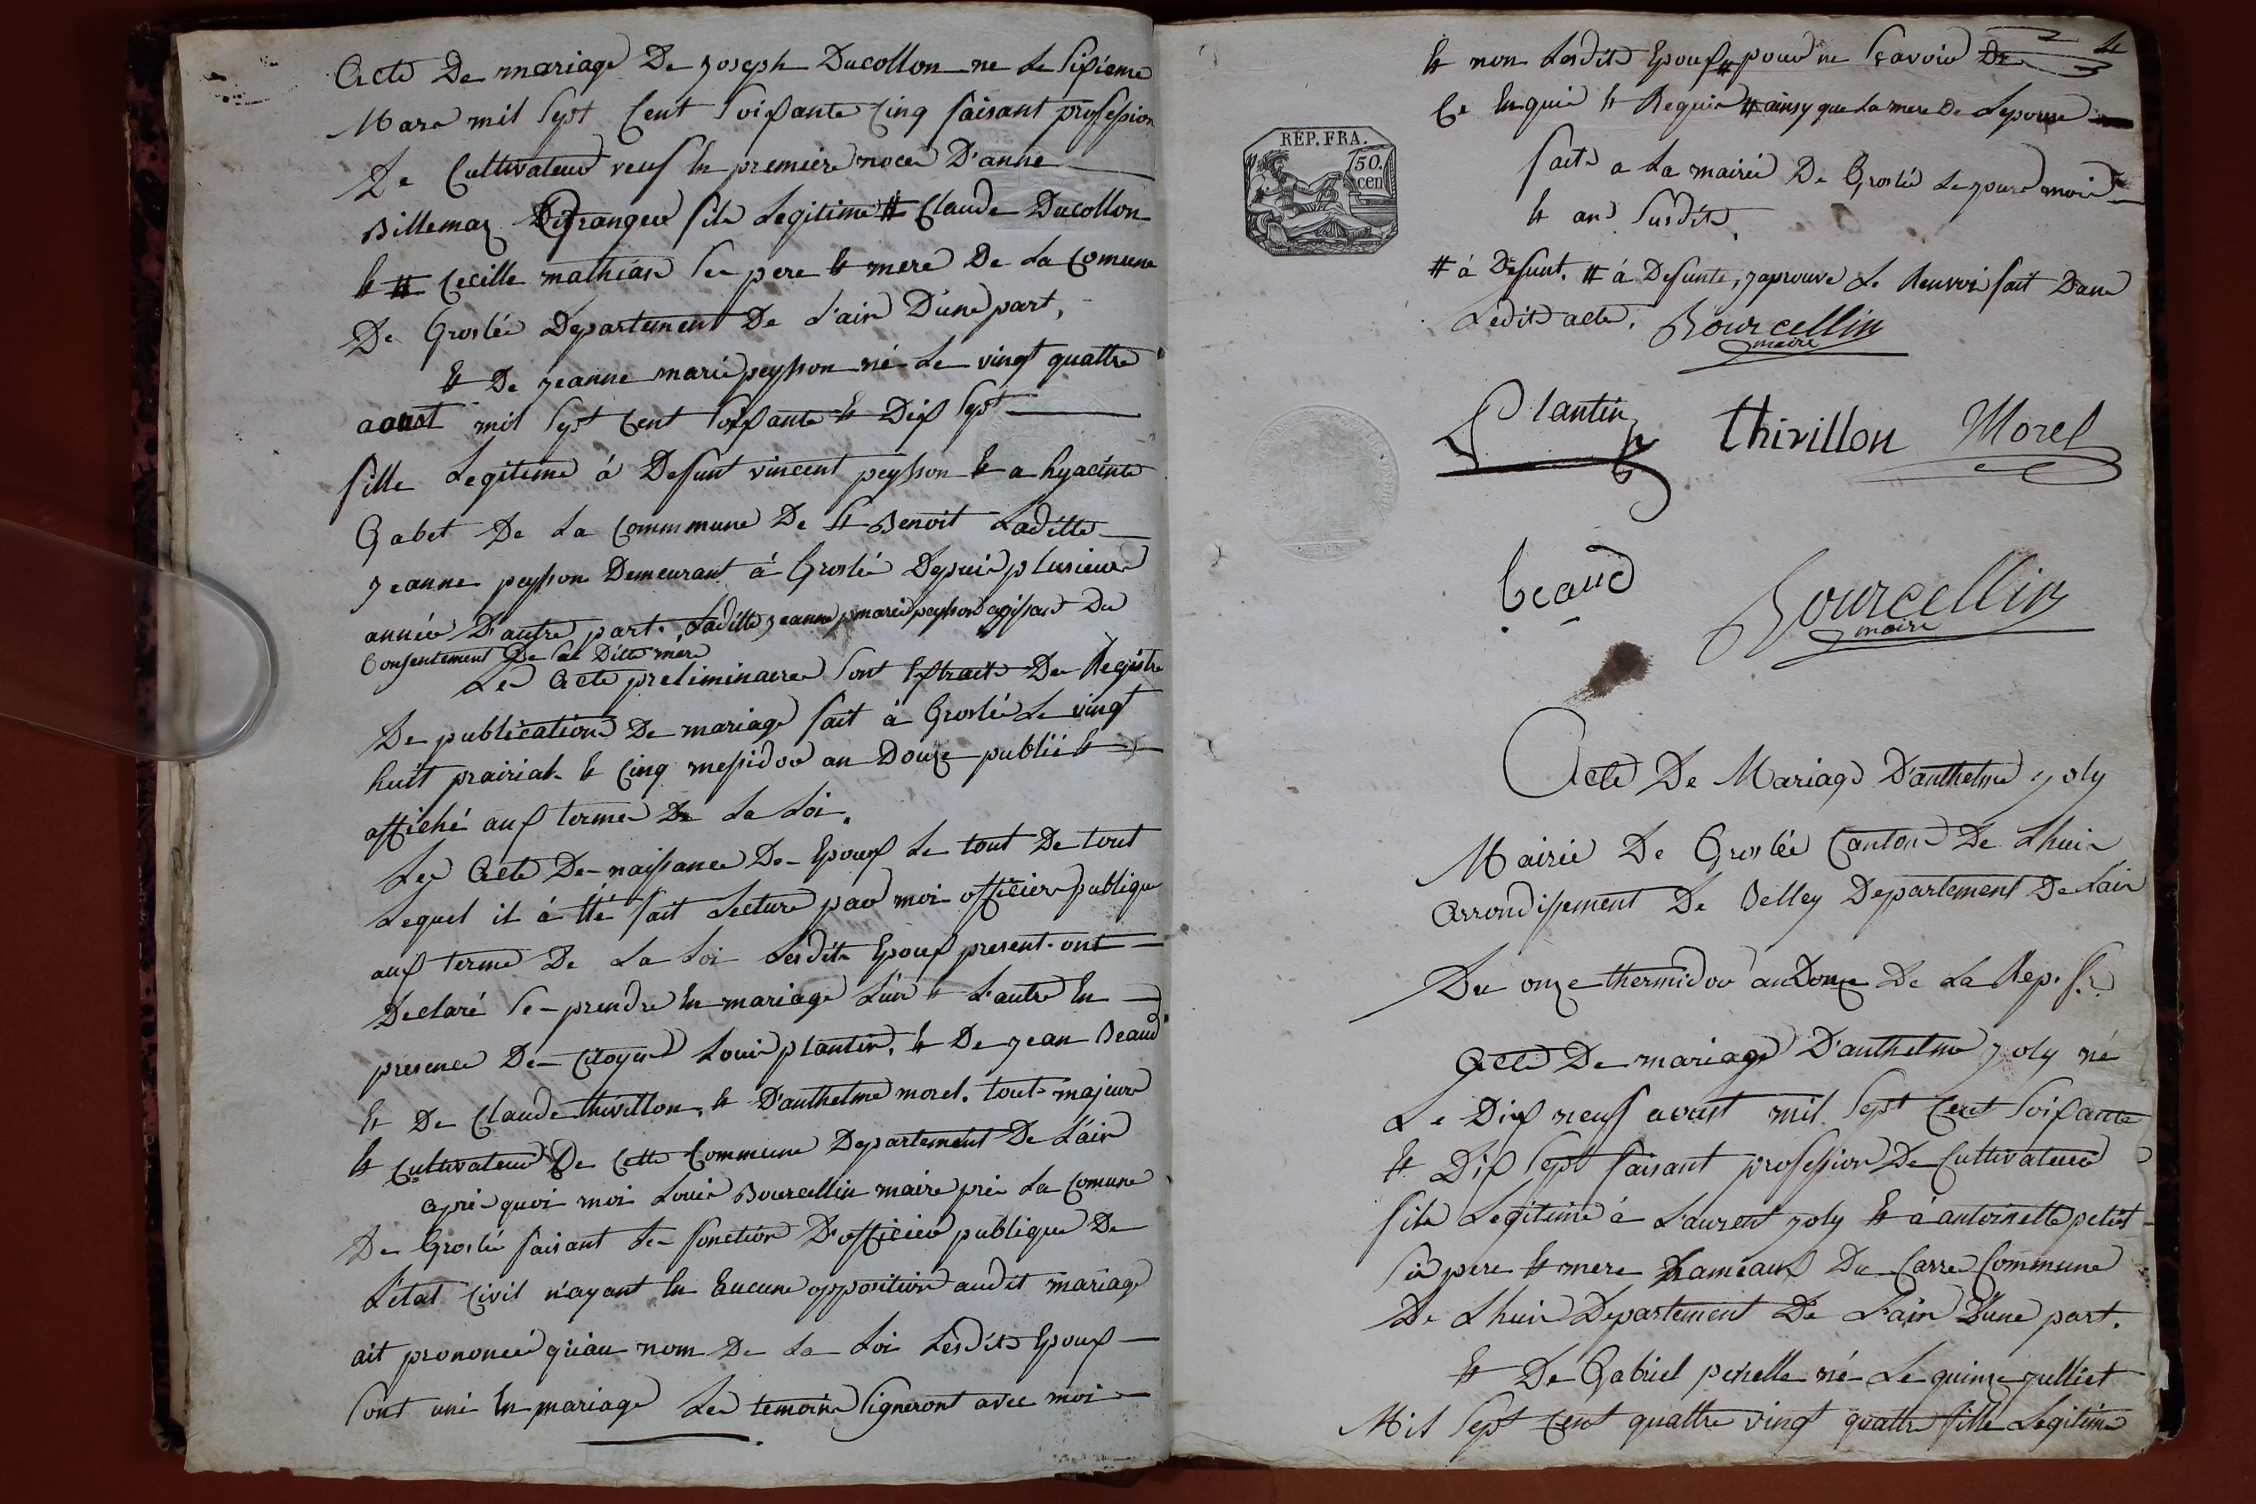 Acte De mariage De joseph Ducollon ne Le Sixieme
Mars mil Sept Cent Soixante Cinq faisant profession
De Cultivateur veuf En premiere noces D'anne
Billemaz fils Legitime # Claude Ducollon
Et # Cecille mathias Ses pere Et mere De La Comune
De Groslée Departement De L'ain D'une part,
Et De jeanne marie peysson né Le vingt quattre
aoust mil Sept Cent Soixante Et Dix Sept
fille Legitime á Defunt vincent peysson Et a hyacinte
Gabet De La Commmune De St Benoit Laditte
jeanne peysson Demeurant á Groslée Depuis plusieurs
années D'autre part. Laditte jeanne marie peysson agissant Du
Consentement De Sa Ditte mere
Les Acte preliminaires Sont Extraits Des Registre
De publications De mariage fait á Groslée Le vingt
huit prairial Et Cinq messidor an Douze publié Et
affiché aux termes De La Loi.
Les Acte De naissance Des Epoux Le tout De tout
Lequel il á Eté fait Lecture par moi officier publique
aux terme De La Loi Lesdits Epoux present ont
Declaré Se prendre En mariage L'un Et L'autre En
presence Des Citoyens Louis plantin, Et De jean Beaud
Et De Claude thivillon, Et D'anthelme morel. tout majeurs
Et Cultivateurs De Cette Commune Departement De L'ain
apres quoi moi Louis Bourcellin maire pres La Comune
De Groslée faisant Les fonction D'officier publique De
L'état Civil n'ayant Eu Eucune opposition audit mariage
ait prononcé qu'au nom De La Loi Lesdits Epoux
Sont uni En mariage Les temoins Signeront avec moi
Et non Lesdits Epoux # pour ne Scavoir De
Ce Enquis Et Requis # ainsy que La mere De Lepouse
fait a La mairie De Groslée Le jours mois
Et an Susdits.
REP. FRA.
50.
cen
# á Defunt. # á Defunte, japrouve Le Renvoi fait Dans
Ledit acte. Bourcellin
maire
Plantin Thivillon Morel
beaud
Bourcellin
maire
Acte De Mariage D'anthelme joly
Mairie De Groslée Canton De Lhuis
Arrondissement De Belley Departement De Lain
Du onze thermidor an Douze De La Rep. fr.
Acte De mariage D'anthelme joly né
Le Dix neuf avoust mil Sept Cent Soixante
Et Dix Sept faisant profession De Cultivateur
fils Legitime á L'aurent joly Et á antoinette petit
Ses pere Et mere hameaux Du Carre Commune
De Lhuis Departement De L'ain D'une part.
Et De Gabriel penelle né Le quinze julliet
Mil Sept Cent quattre vingt quattre fille Legitime